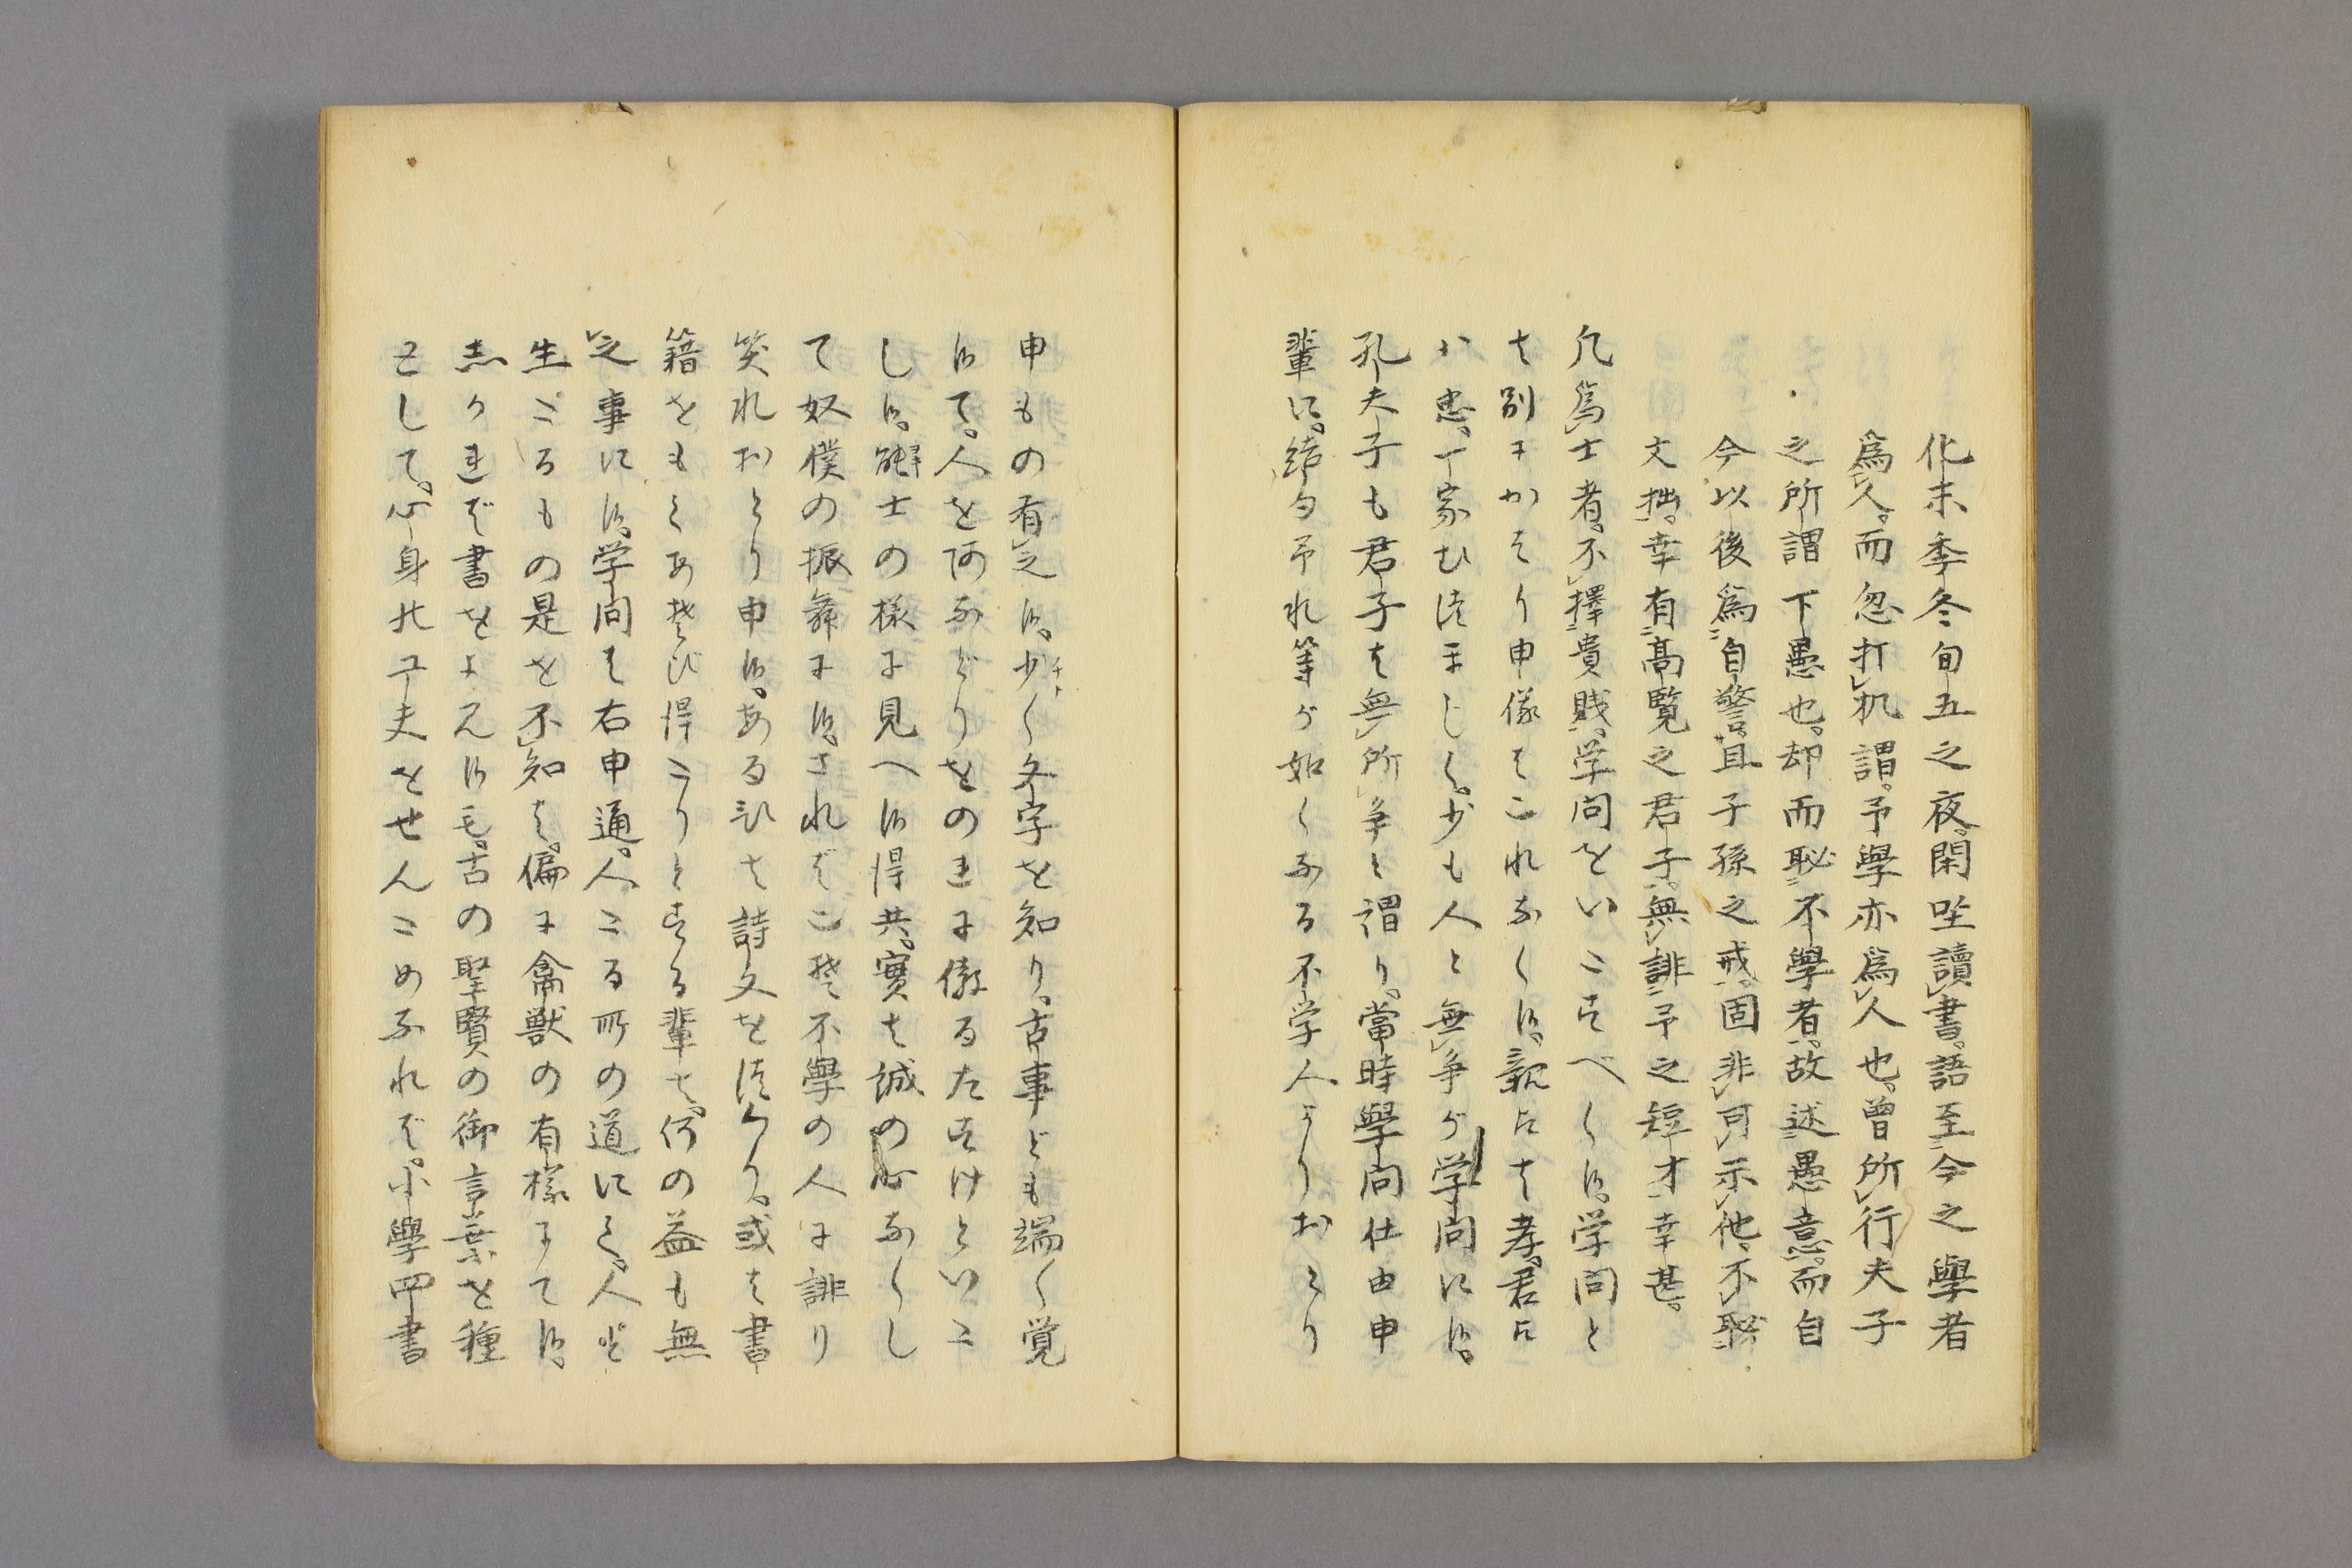 化末季冬旬五之夜。閑坐讀書。語至今之學者
爲人。而忽打机謂。予學亦爲人也。曾所行夫子
之所謂下愚也。却而恥不學者。故述愚意。而自
今以後爲自警。且子孫之戒。固非可示他。不恥
文拙。幸有高覧之君子。無誹予之短才。幸甚。
凡爲士者。不擇貴賎。学問をいたすべく候。学問と
て別にかはり申儀はこれなく候。親には孝。君に
ハ忠。一家むつまじく。少も人と無争が学問に候。
孔夫子も君子は無所争と謂り。當時學問仕由申
輩に。結句予れ等が如くなる不学人よりおとり
申もの有之候。少く文字を知り。古事ども端く覚
候て。人をあなどりをのれに傲るたすけといた
し候。儒士の様に見へ候得共。實は誠の心なくし
て奴僕の振舞に候。さればこそ不學の人に誹り
笑れおとり申候。あるひは詩文をつくり。或は書
籍をもてあそび得たりとする輩は。何の益も無
之事に候。学問は右申通。人たる所の道にて。人と
生たるもの是を不知は。偏に禽獣の有様にて候。
しかれば書をよみ候も。古の聖賢の御言葉を種
として。心身の工夫をせんためなれば。小學四書